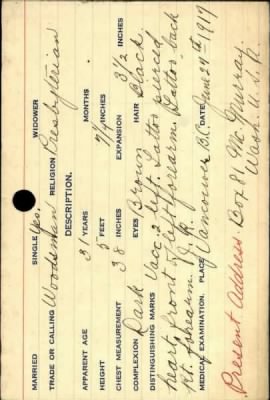 MARRIED SINGLE Yes. WIDOWER
TRADE OR CALLING Woodsman RELIGION Presbyterian
DESCRIPTION.
APPARENT AGE 31 YEARS MONTHS
HEIGHT 5 FEET 7¼ INCHES
CHEST MEASUREMENT 38 INCHES EXPANSION 3½ INCHES
COMPLEXION Dark EYES Brown HAIR Black
DISTINGUISHING MARKS Vacc. 2 left. Tattoo pierced
heart front left forearm. Tattoo back
Rt. forearm
MEDICAL EXAMINATION. PLACE Vancouver B.C. DATE June 27th 1917
Present Address Box 81 Mc Murray.
Wash. U.S.A.